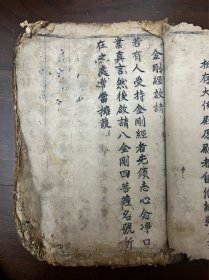 金剛經啟請
若有人受持金剛經者先須志心念淨口
業真言然後啟請八金剛四菩薩名號所
在之處常當擁護